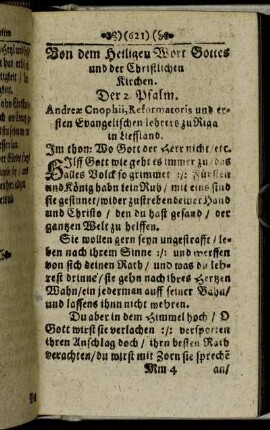 (621)
Von dem Heiligen Wort Gottes
und der Christlichen
Kirchen.
Der 2. Psalm.
Andreæ Cnophii, Reformatoris und er-
sten Evangelischen lehrers zu Riga
in Lieffland.
Im thon: Wo Gott der Herr nicht/ etc.
Hilff Gott wie geht es immer zu/ das
alles Volck so grimmet :/: Fürsten
und König habn kein Ruh/ mit eins sind
sie gesinnet/ wider zustreben deiner Hand
und Christo / den du hast gesand / der
gantzen Welt zu helffen.
Sie wollen gern seyn ungestrafft / le-
ben nach ihrem Sinne :/: und werffen
von sich deinen Rath/ und was du leh-
rest drinne/ sie gehn nach ihres Hertzen
Wahn/ ein jederman auff seiner Bahn/
und lassens ihnn nicht wehren.
Du aber in dem Himmel hoch / O
Gott wirst sie verlachen :/: verspotten
ihren Anschlag doch / ihrn besten Rath
verachten/ du wirst mit Zorn sie spreche͂
Mm 4 an/